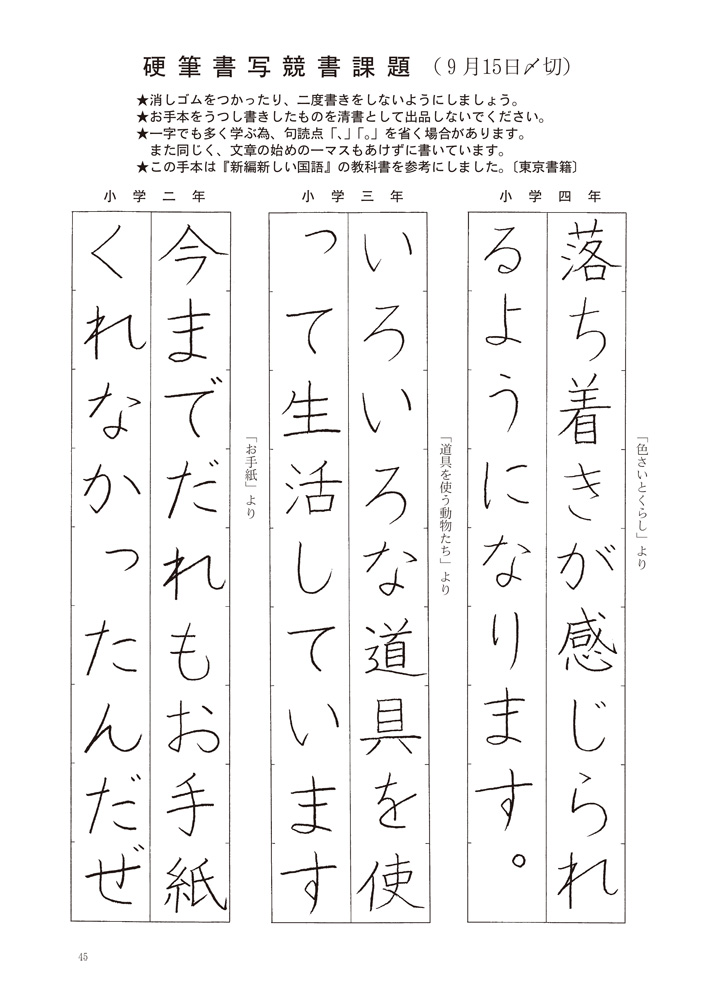 硬筆書写競書課題（９月15日〆切）
★消しゴムをつかったり、二度書きをしないようにしましょう。
★お手本をうつし書きしたものを清書として出品しないでください。
★一字でも多く学ぶ為、句読点「、」「。」を省く場合があります。
また同じく、文章の始めの一マスもあけずに書いています。
★この手本は『新編新しい国語』の教科書を参考にしました。〔東京書籍〕
小学四年
「色さいとくらし」より
落ち着きが感じられ
るようになります。
小学三年
「道具を使う動物たち」より
いろいろな道具を使
って生活しています
小学二年
「お手紙」より
今までだれもお手紙
くれなかったんだぜ
45